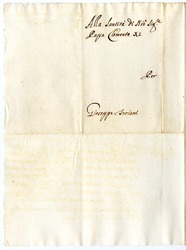 Alla Santità di N͞ro Sig.re
Papa Clemente XI
Per
Giuseppe